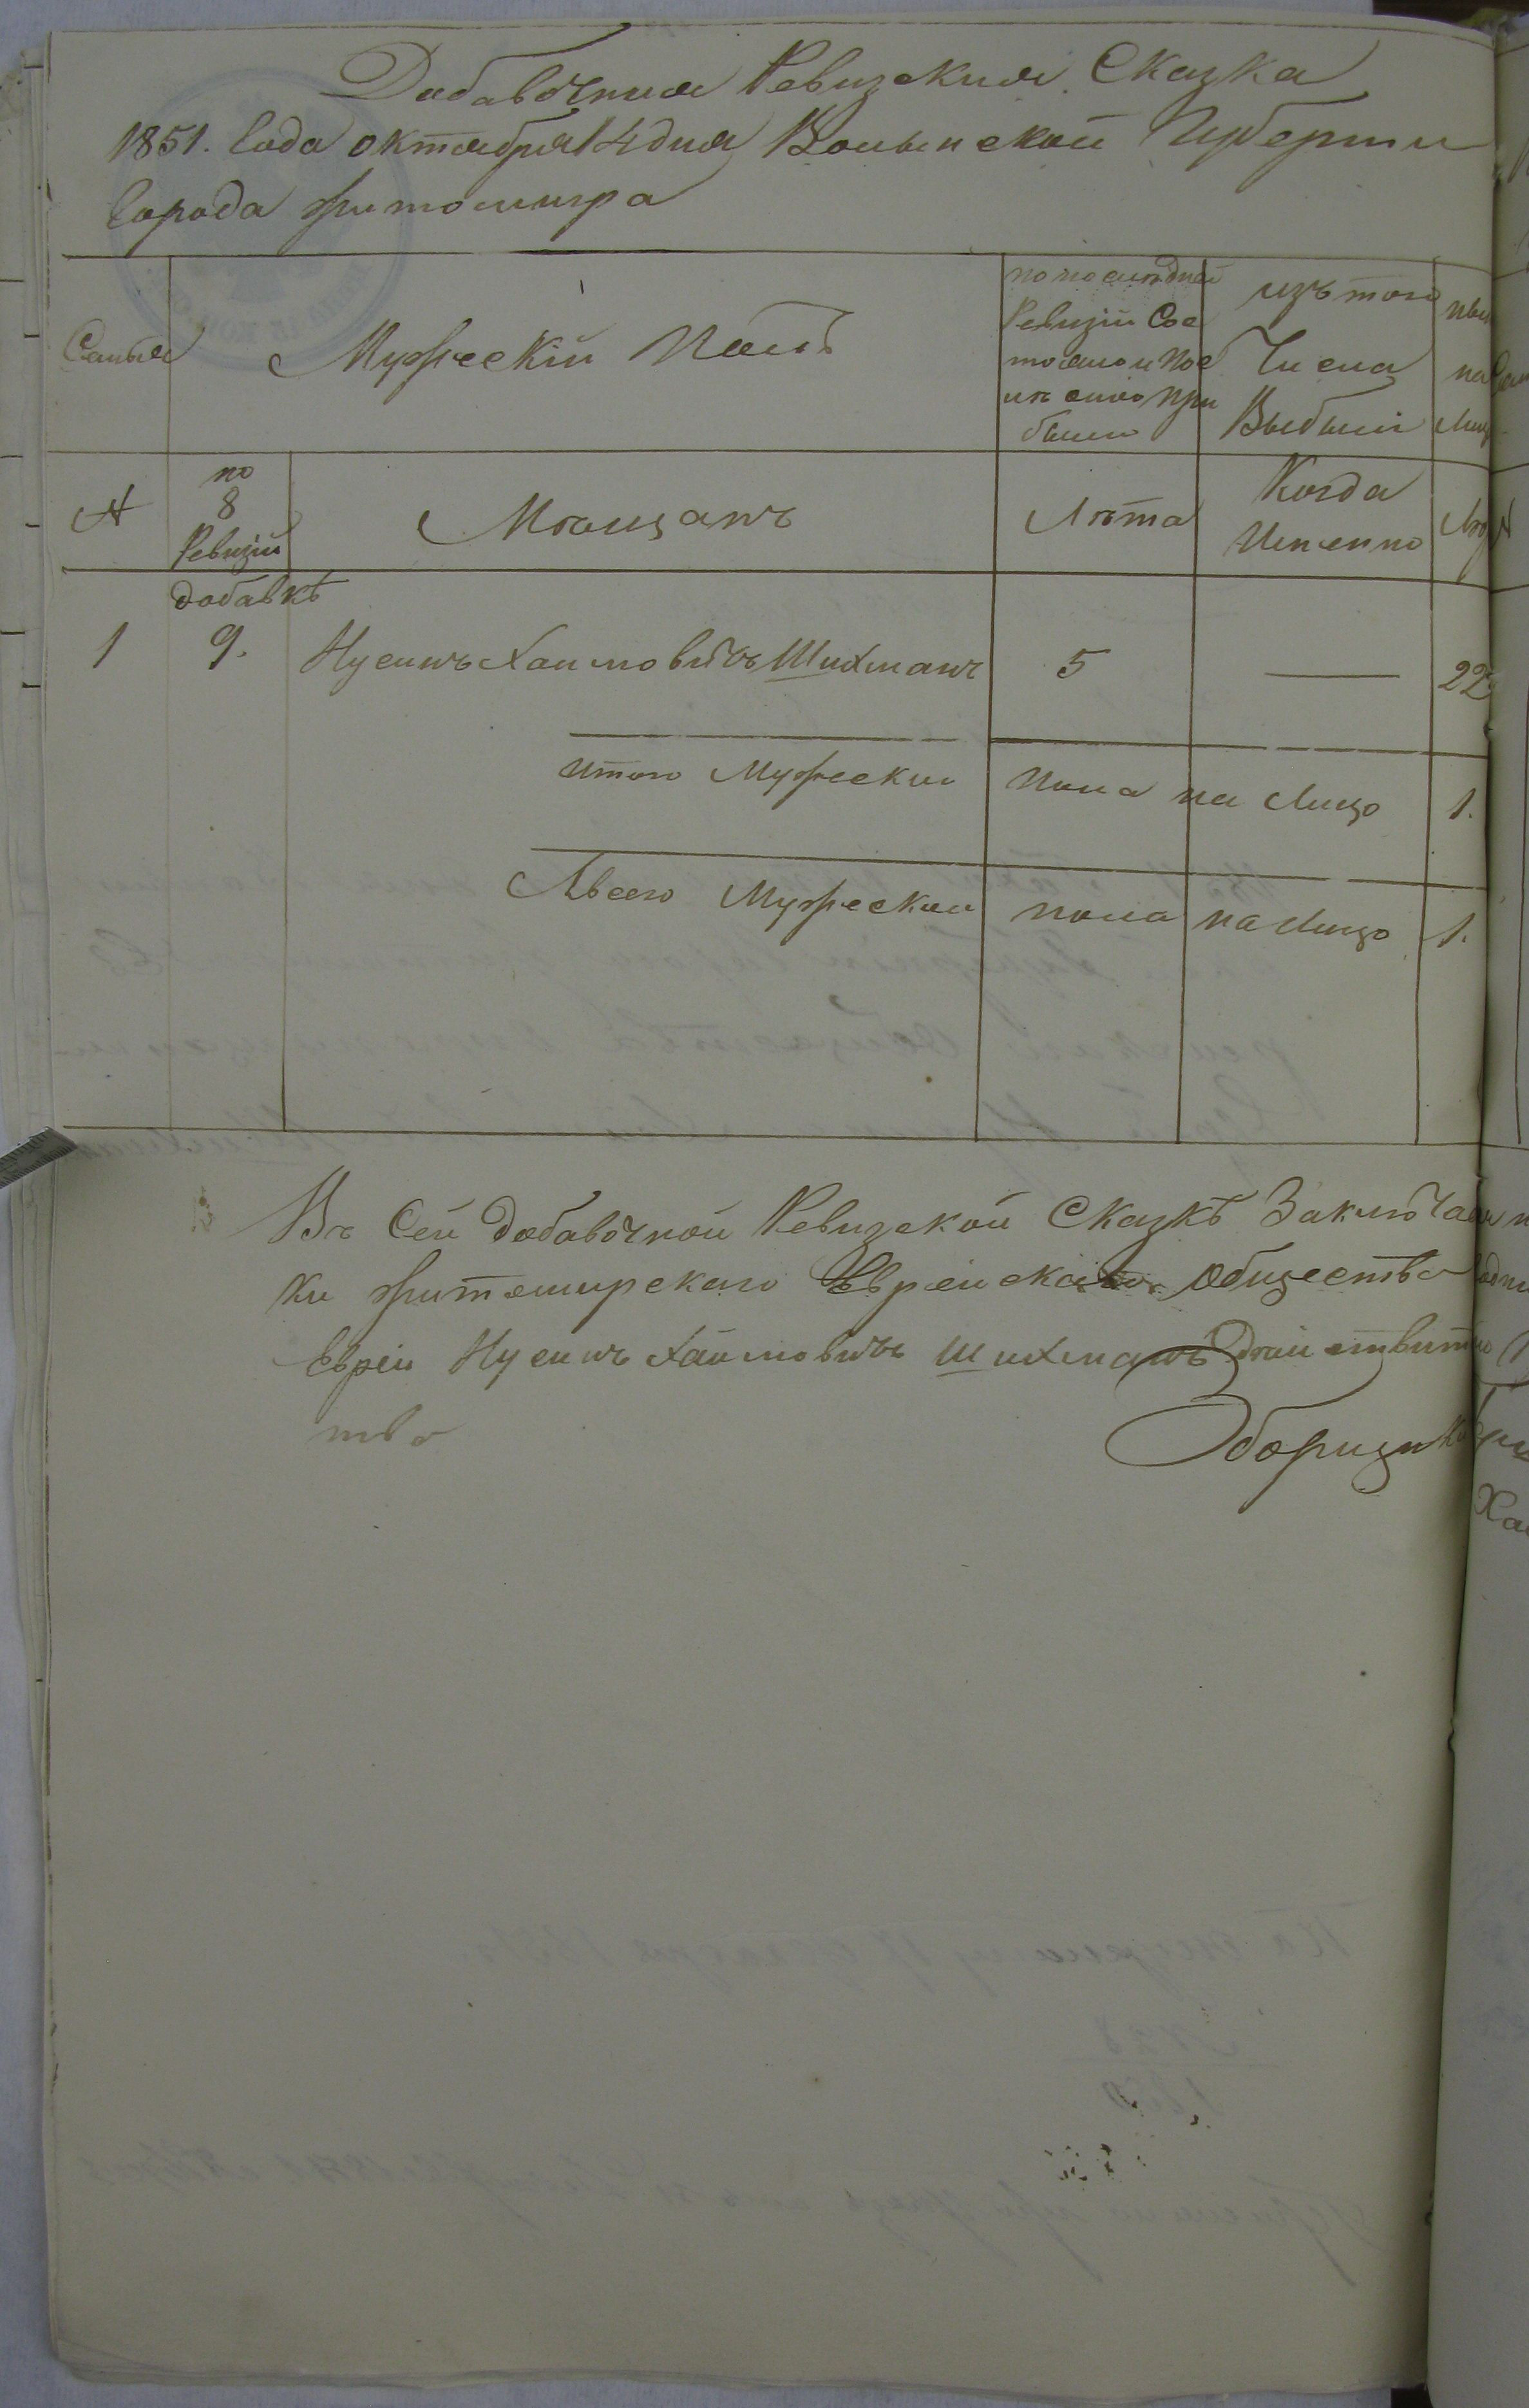 Добавочная Ревизская Сказка
1851. Года октября 14 дня Волынской Губерти
Города житомира
Семья
Мужескій Полъ
по последней
Ревизіи Сос
тояло и пос
ле оного при
было
изъ того
Числа
Выбыли
ныне
на
Лицо
№
по
8
Ревизіи
Мещанъ
Лета
Когда
Именно
добавкѣ
1 9. Нусинъ Хаимовичъ Шихманъ 5 22
итого Мужеска пола на Лицо 1.
Авсего Мужеска пола на лицо 1.
Въ Сей добавочной Ревизской Сказкѣ Заключаем
ки житомирскаго Еврейскаго общества
Евреи Нусинъ Хаимовичъ Шихманъ действит
тва
Зборщики